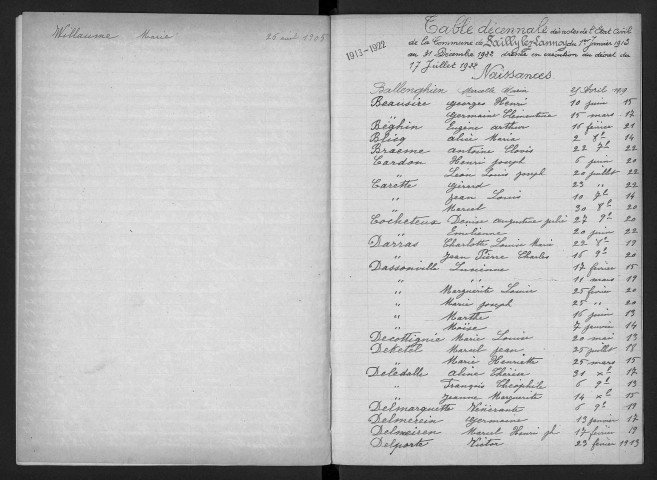 Willaume Marie 26 aout 1905
1913-1922
Table décennale des actes de l'Etat Civil
de la Commune de Sailly-lez-Lannoy du 1er Janvier 1913
au 31 Décembre 1922 dressée en exécution du décret du
17 Juillet 1922
Naissances
Ballenghien Marcelle Maria 21 Avril 1919
Beausire Georges Henri 10 juin 15
" Germaine Clémentine 15 mars 17
Béghin Eugène Arthur 16 février 21
Blicq Alice Maria 2 8bre 14
Braeme Antoine Clovis 22 7bre 22
Cardon Henri Joseph 6 juin 20
" Léon Louis Joseph 20 juillet 22
Carette Gérard 23 " 22
" Jean Louis 10 7bre 14
" Marcel 30 8bre 20
Cocheteux Denise Augustine Julie 27 9bre 20
" Emilienne 20 juin 22
Darras Charlotte Louise Marie 22 8bre 19
" Jean Pierre Charles 16 9bre 20
Dassonville Lucienne 17 février 15
" " 11 mars 19
" Marguerite Louise 25 février 20
" Marie Joseph 25 " 20
" Marthe 16 juin 13
" Moïse 7 janvier 14
Decottignie Marie Louise 20 mai 13
Deketel Marcel Jean 25 juillet 18
" Marie Henriette 25 mars 15
Deledalle Aline Thérèse 31 Xbre 17
" François Théophile 6 9bre 13
" Jeanne Marguerite 14 Xbre 15
Delmarquette Vénérante 6 9bre 19
Delmeiren Germaine 13 janvier 17
Delmeiren Marcel Henri 17 février 19
Delporte Victor 23 février 1913